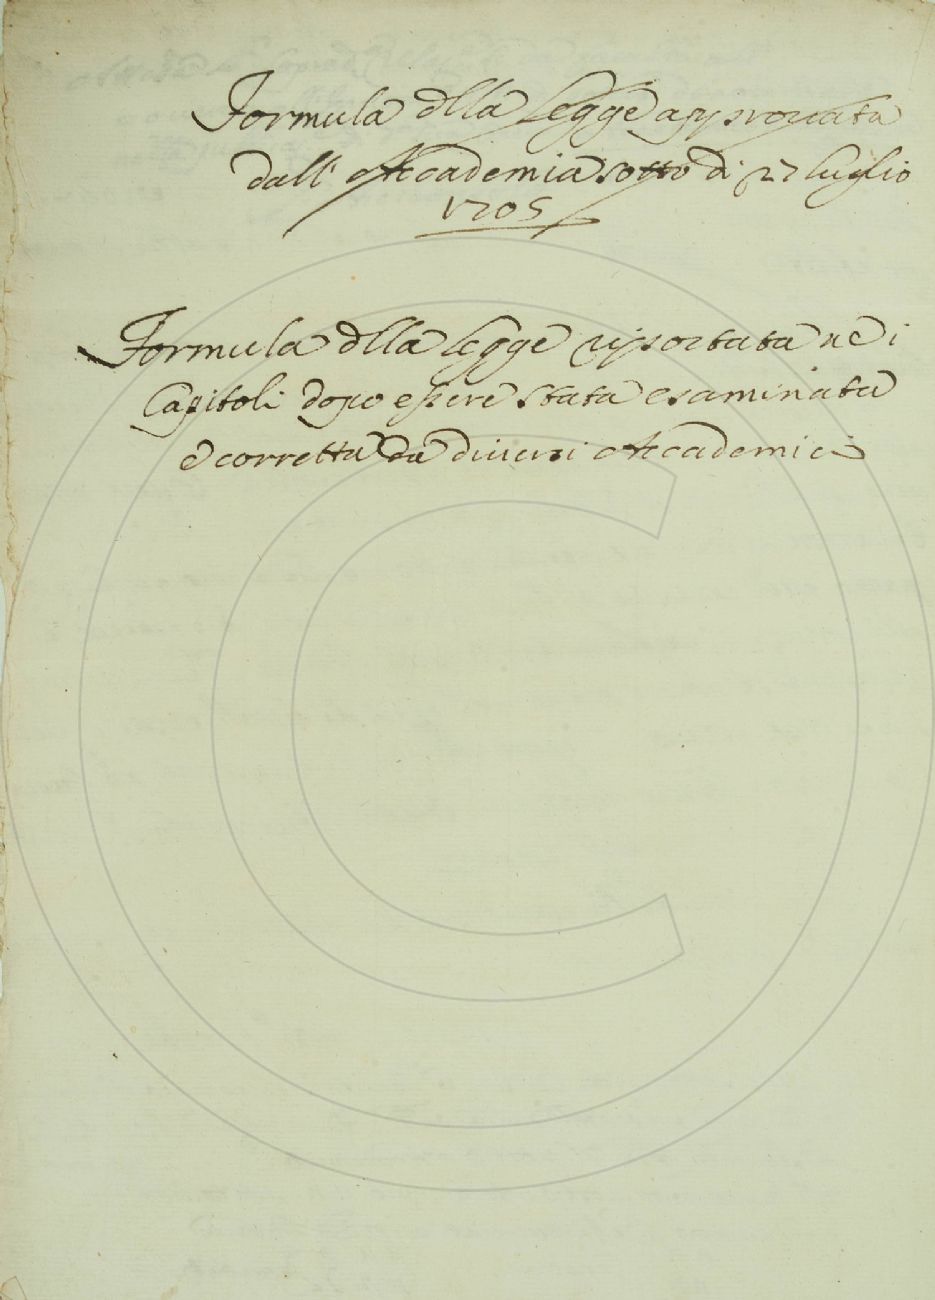 Formula dlla Legge approvata
dall' Accademia sotto di 27 luglio
1705
Formula dlla Legge riportata ne i
Capitoli dopo essere stata esaminata
e corretta da diversi Accademici